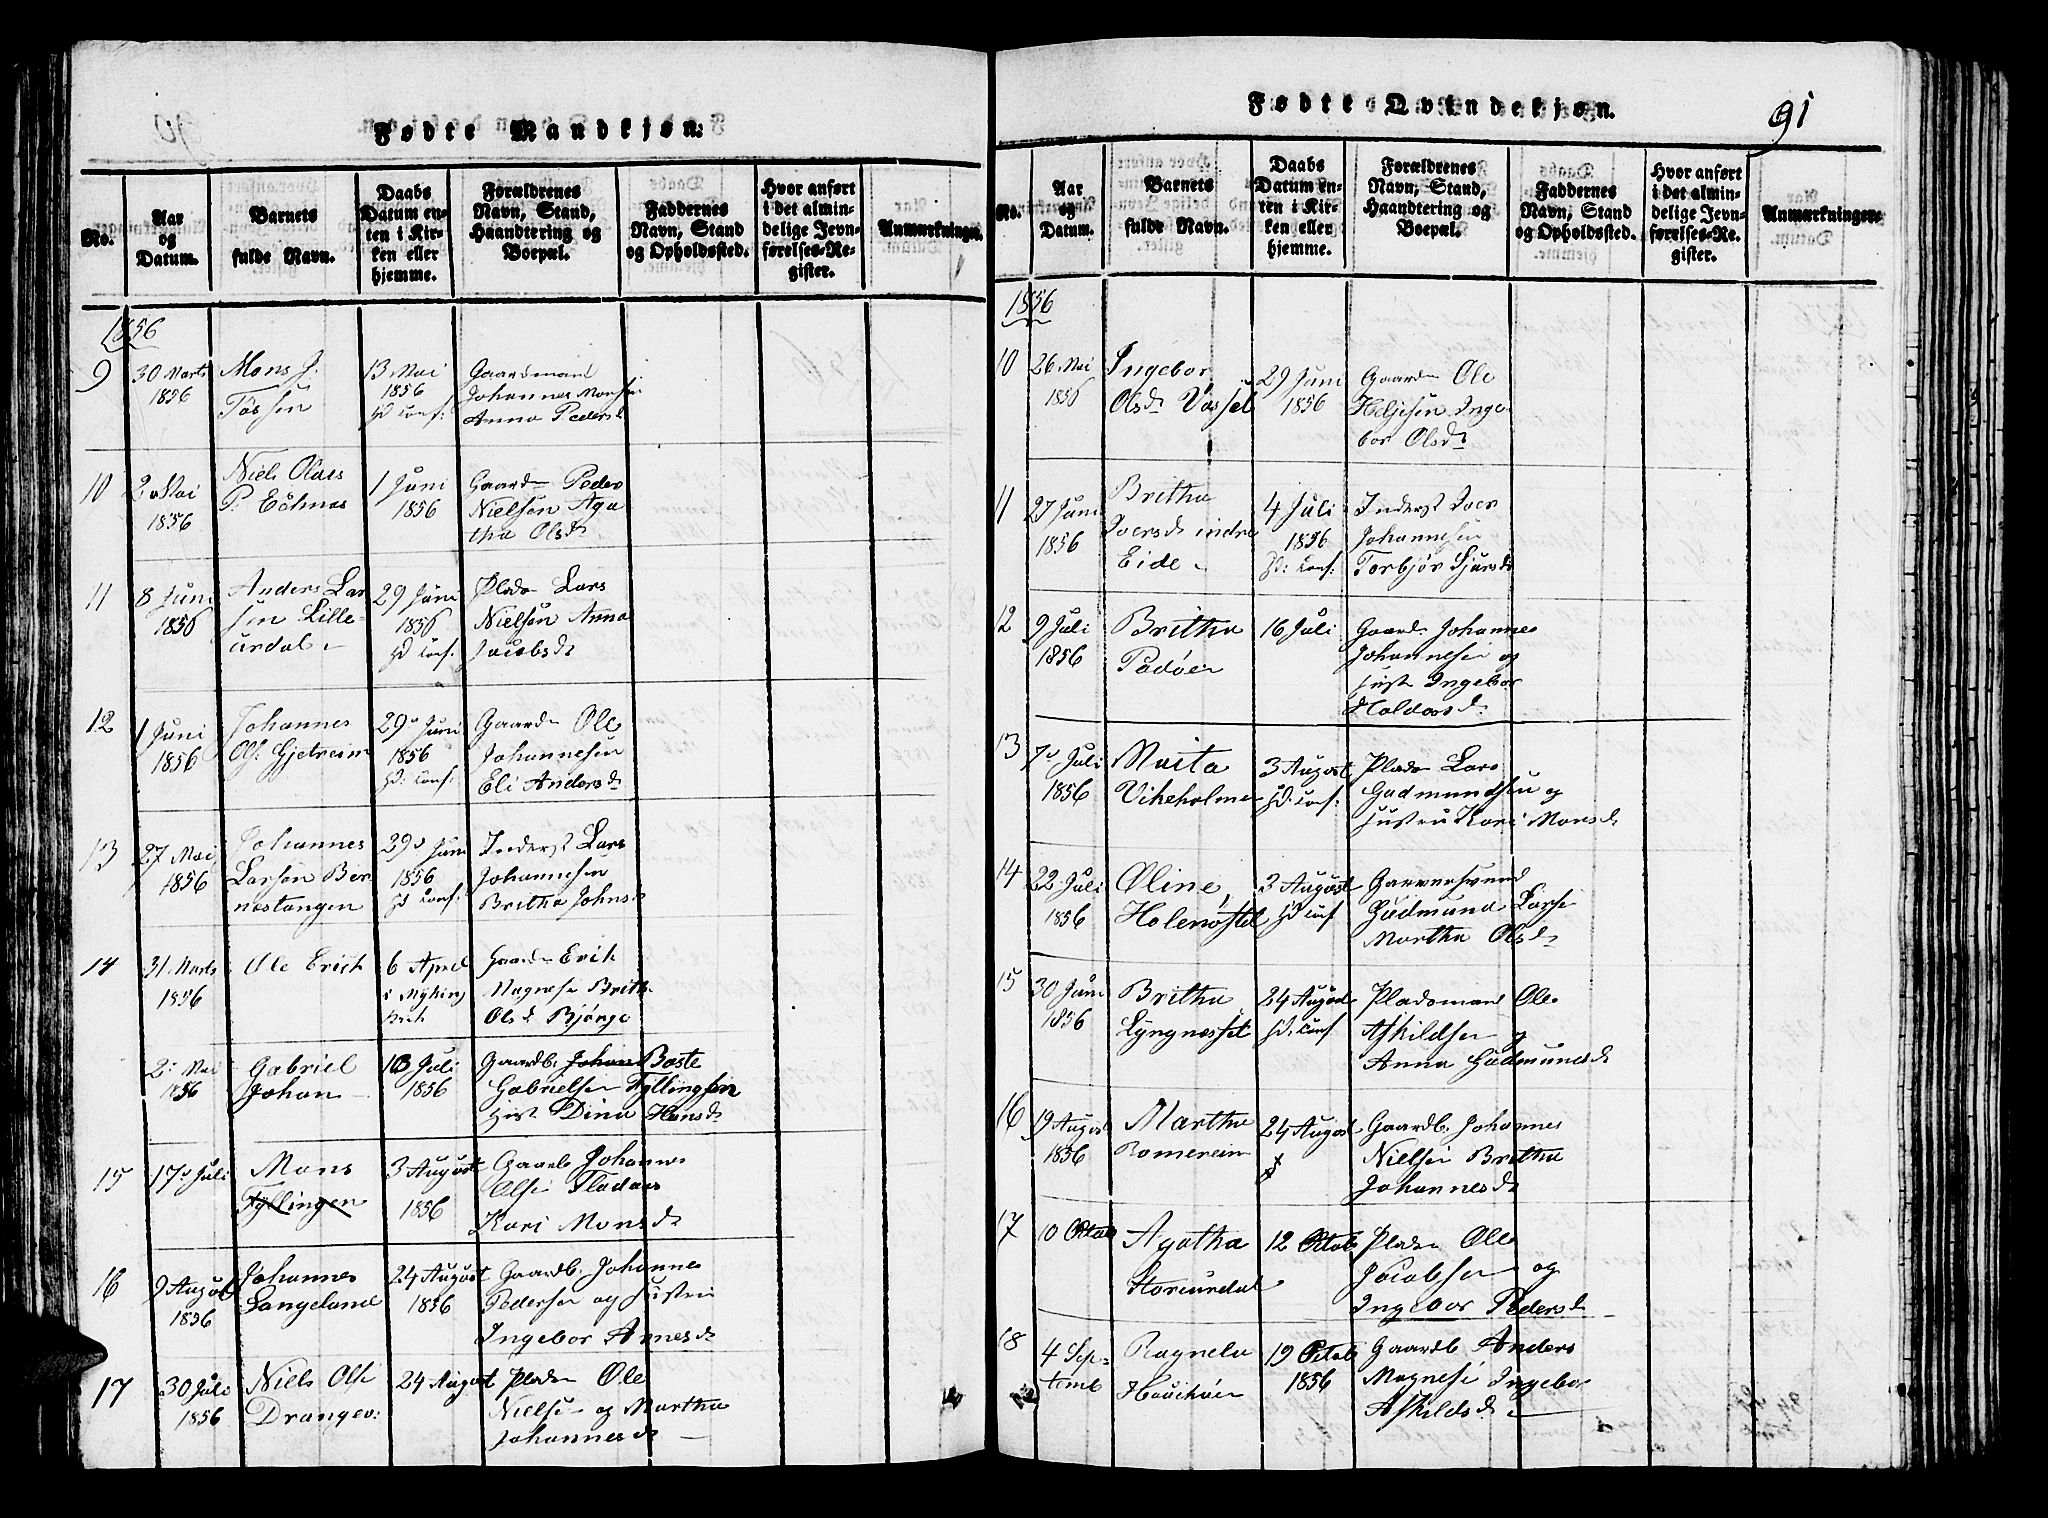 Fødte Mandkjøn.
No.
Aar
og
Datum.
Barnets
fulde Navn.
Daabs
Datum en-
ten i Kir-
ken eller
hjemme.
Forældrenes
Navn, Stand,
Haandtering og
Boepæl.
Faddernes
Navn, Stand
og Opholdssted.
Hvor anført
i det almin-
delige Jevn-
førelses-Re-
gister.
Anmærkninger.
1856
9
30 Marts
1856
Mons J.
13 Mai
1856
Gaardmand
Johannes Monse
Anna Peders
10
2 Mai
1856
Niels Olaes
P.
1 Juni
1856
Gaardm Peder
Nielsen Aga
tha Olsd
11
8 Juni
1856
Anders Lar
sen Lille
urdal
29 Juni
1856
Plads Lars
Nielsen Anna
Jacobsd
12
1 Juni
1856
Johannes
Ols. Gjetreim
29 Juni
1856
Gaardm Ole
Johannesen
Eli Andersd
13
27 Mai
1856
Johannes
Larsen Ber
nestangen
29 Juni
1856
Inderst Lars
Johannesen
Britha Johns
14
31 Marts
1856
Ole Erich
6 April
Gaardm Erik
Magnese Brith
Olsd Bjørge
2 Mai
1856
Gabriel
Johan
13 Juli
1856
Gaardb. Johan Baste
Gabrielsen Fyllingsen
Dina Hansd
15
17 Juli
Mons
Fyllingen
3 August
1856
Gaardb Johannes
Olse Fladaas
Kari Monsd
16
9 August
1856
Johannes
Langeland
24 August
1856
Gaardb. Johannes
Pederse og Hustru
Ingebor Arnesd
17
30 Juli
1856
Niels Olse
Drangev:
24 August
Pladsm Ole
Nielse og Martha
Johannesd
Fødte Qvindekjøn.
91
No.
Aar
og
Datum.
Barnets
fulde Navn.
Daabs
Datum en-
ten i Kir-
ken eller
hjemme.
Forældrenes
Navn, Stand,
Haandtering og
Boepæl.
Faddernes
Navn, Stand
og Opholdssted.
Hvor anført
i det almin-
delige Jevn-
førelses-Re-
gister.
Anmærkninger.
1856
10
26 Mai
1856
Ingebor
Olsd Vassel
29 Juni
1856
Gaardm Ole
Heljesen Inge
bor Olsd
11
27 Juni
1856
Britha
Iversd indre
Eide
4 Juli
1856
Inderst Iver
Johannesen
Torbjør Sjursd
12
9 Juli
1856
Britha
Padøen
16 Juli
Gaardm Johannes
Johannesen og
Hust Ingebor
Haldorsd
13
7 Juli
1856
Marta
Vikeholme
3 August
Pladsm Lars
Gudmundsen og
Hustru Kari Monsd
14
22 Juli
1856
Oline
Holenøstel
3 August
Garversvend
Gudmund Larse
Martha Olsd
15
30 Juni
1856
Britha
Lyngnesset
24 August
Pladsmand Ole
Askildsen og
Anna Gudmundsd
16
19 August
1856
Martha
Romerein
24 August
Gaardb. Johannes
Nielsen Britha
Johannesd
17
10 Octob
Agatha
Storeurdal
12 Octob
Pladsm Ole
Jacobsen og
Ingebor Pedersd
18
4 Sep-
temb
Ragnela
Haukøen
19 Octob
1856
Gaardb Anders
Magnese Ingebor
Askildsd